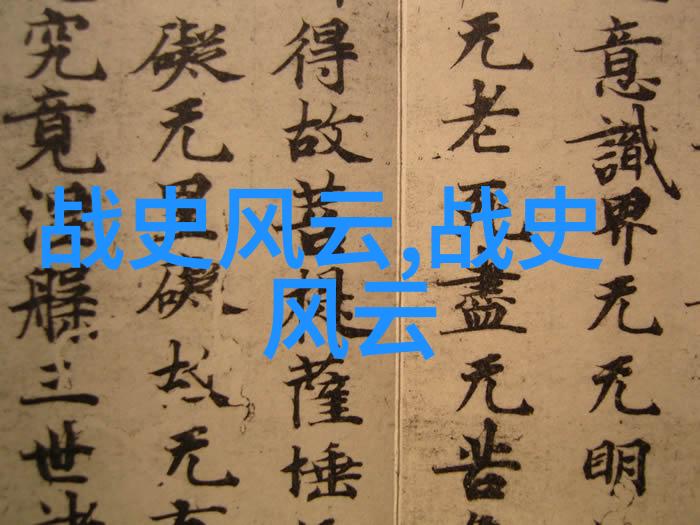 战史风云,战史
风云
意識界无无明
无老死盡无苦
得故菩提薩埵
礙无罣礙故无
究竟涅槃三世諸